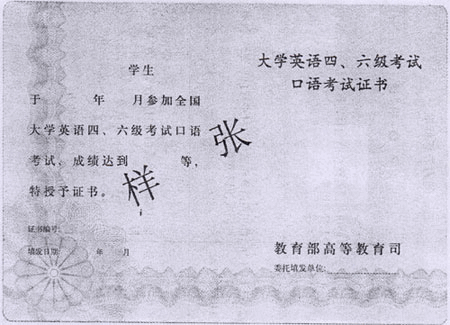 学生
于 年 月参加全国
大学英语四、六级考试口语
考试、成绩达到 等,
特授予证书。
证书编号:
填发日期: 年 月
样张
大学英语四、六级考试
口语考试证书
教育部高等教育司
委托填发单位: